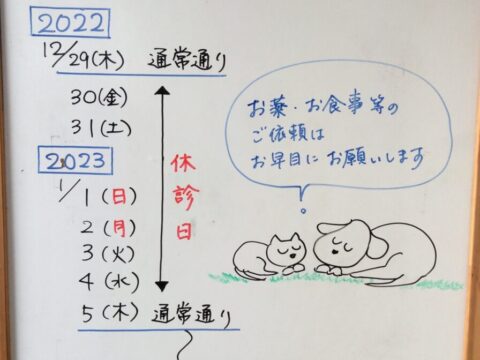 2022
12/29(木) 通常通り
30(金)
31(土)
休診日
2023
1/1(日)
2(月)
3(火)
4(水)
5(木) 通常通り
お薬・お食事等の
ご依頼は
お早目にお願いします